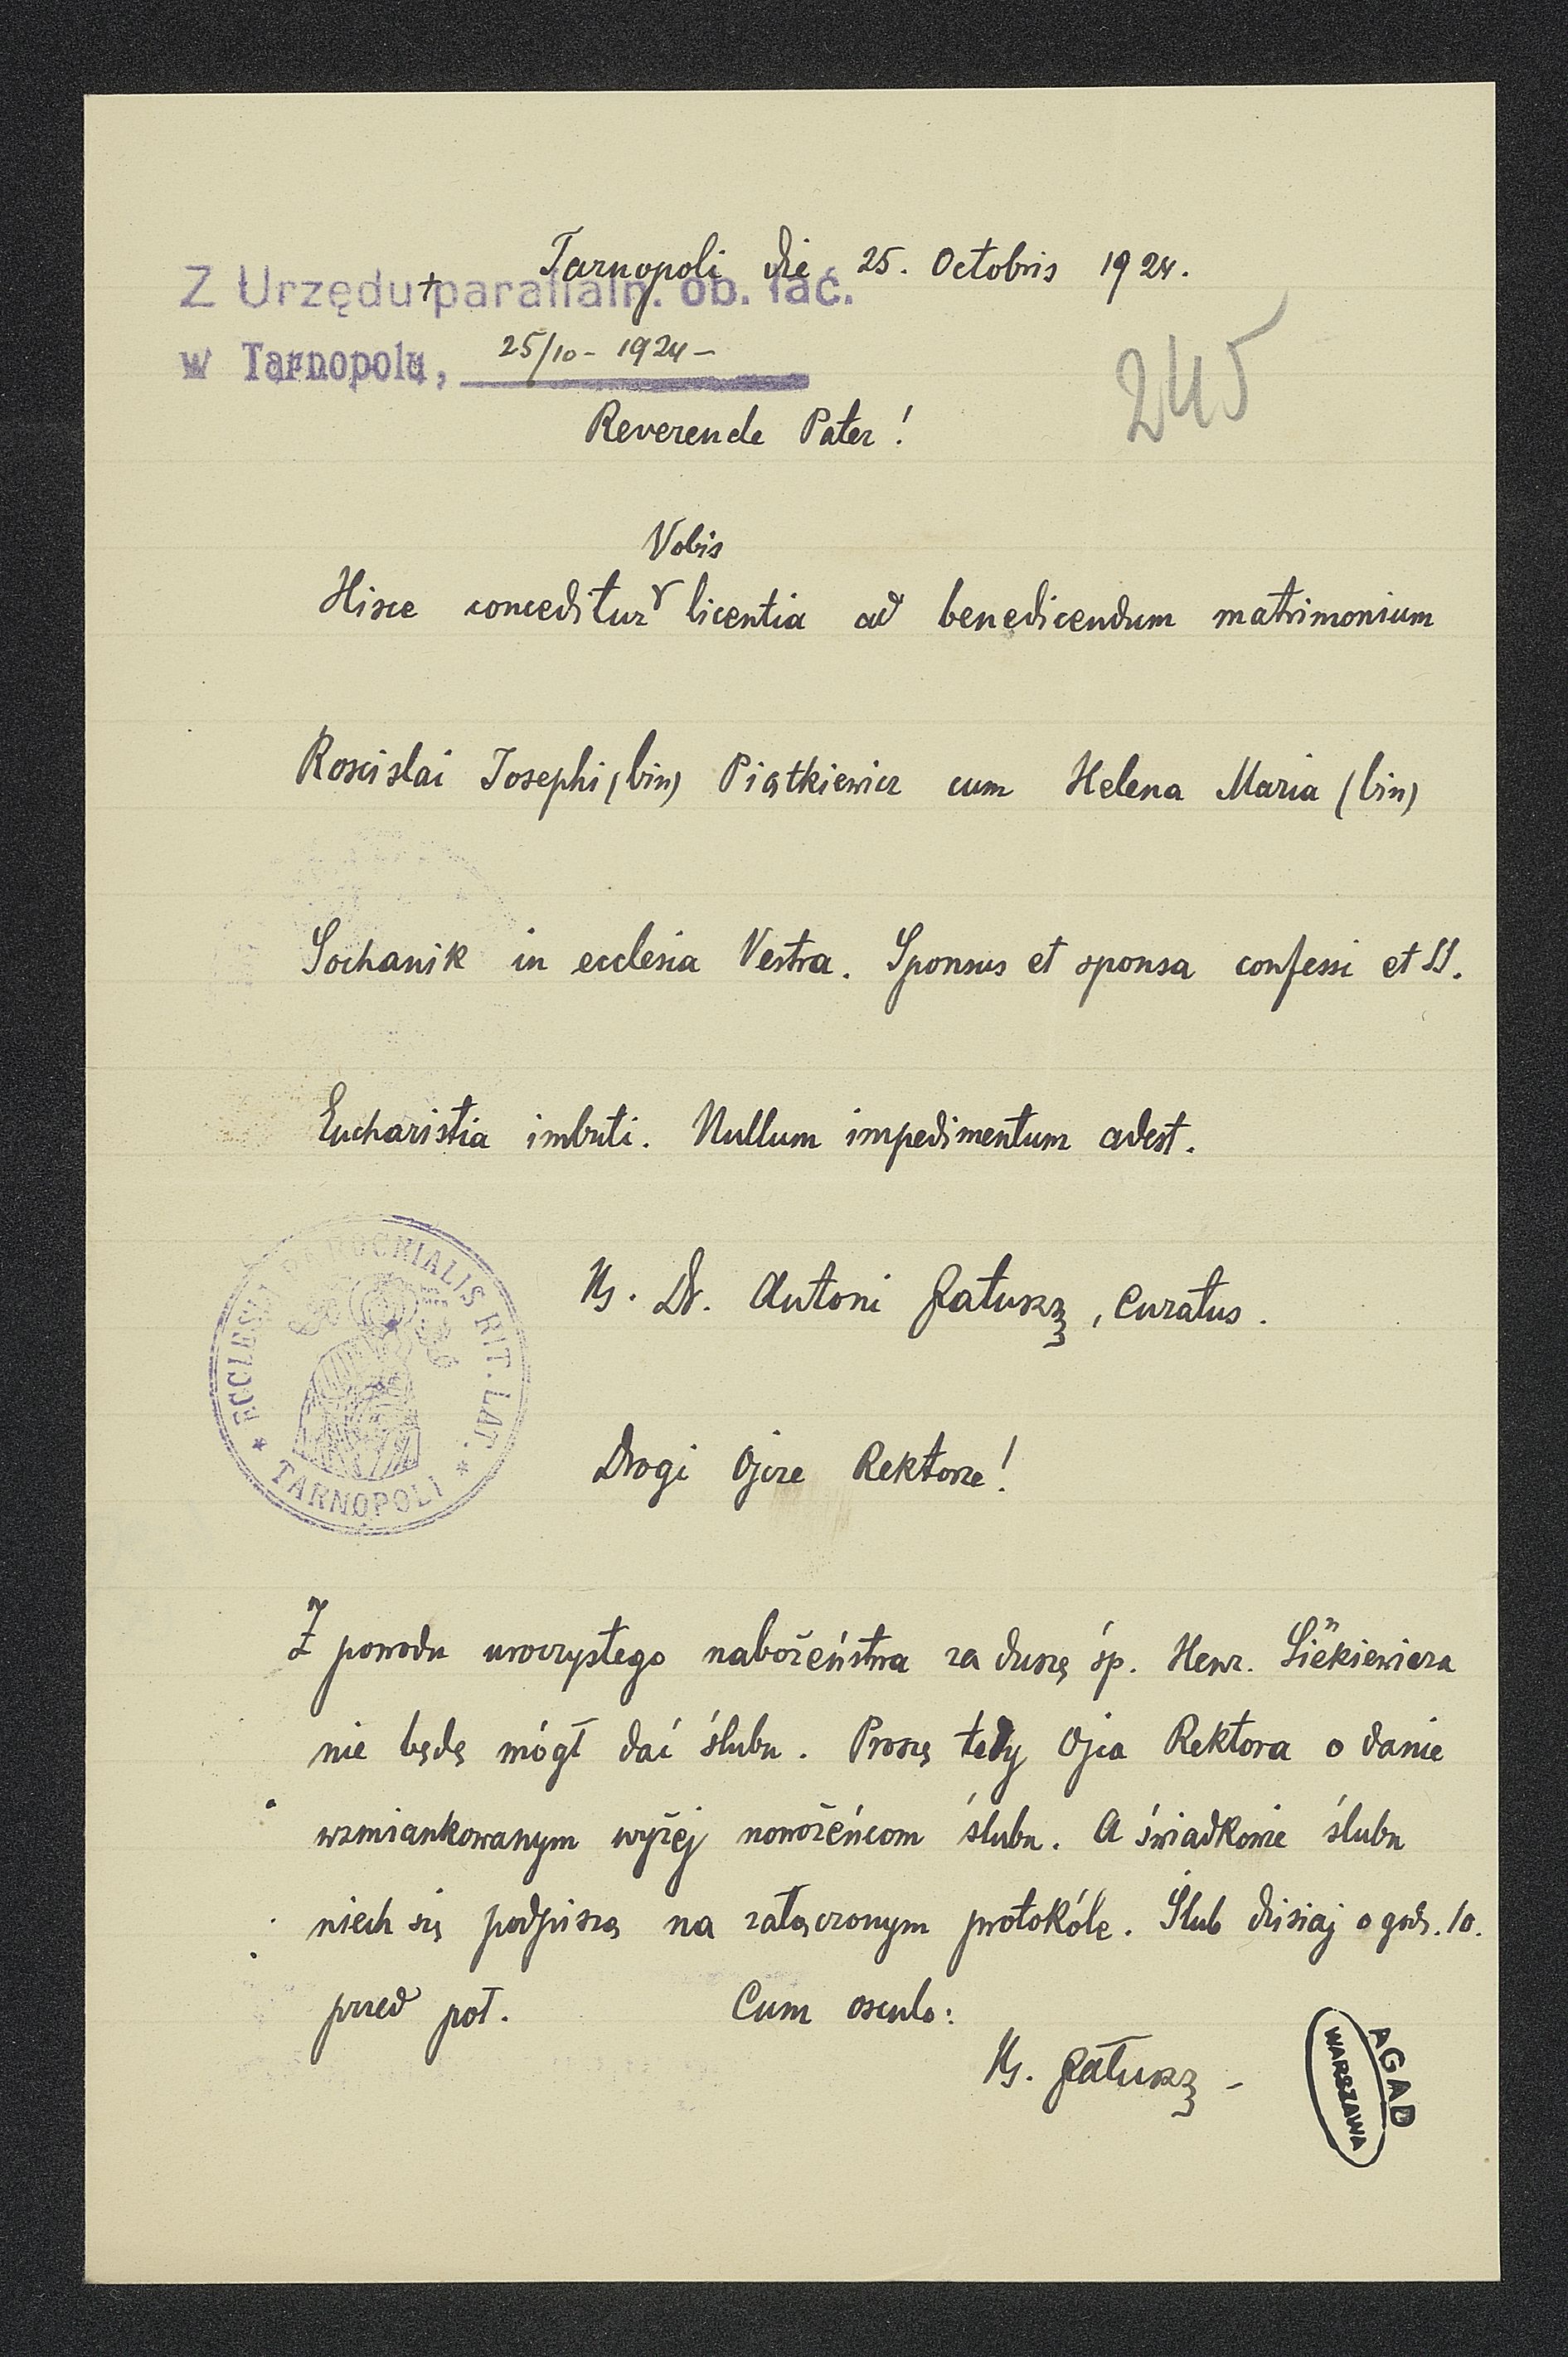 Tarnopoli die 25. Octobris 1924.
Z Urzędu + parafialn. ob. łać.
w Tarnopolu, 25/10 - 1924 -
245
Reverende Pater!
Vobis
Hisce conceditur licentia ad benedicendum matrimonium
Roscislai Josephi (bin) Piątkiewicz cum Helena Maria (bin)
Sochanik in ecclesia Vestra. Sponsus et sponsa confessi et SS.
Eucharistia imbuti. Nullum impedimentum adest.
ECCLESIAE PAROCHIALIS RIT. LAT. * TARNOPOLI *
Ks. Dr. Antoni Gałuszą, Curatus.
Drogi Ojcze Rektorze!
Z powodu uroczystego nabożeństwa za duszę śp. Henr. Sienkiewicza
nie będę mógł dać ślubu. Proszę tedy Ojca Rektora o danie
wzmiankowanym wyżej nowożeńcom ślubu. A świadkowie ślubu
niech się podpiszą na załączonym protokóle. Ślub dzisiaj o godz. 10.
przed poł. Cum osculo:
Ks. 
AGAD
WARSZAWA